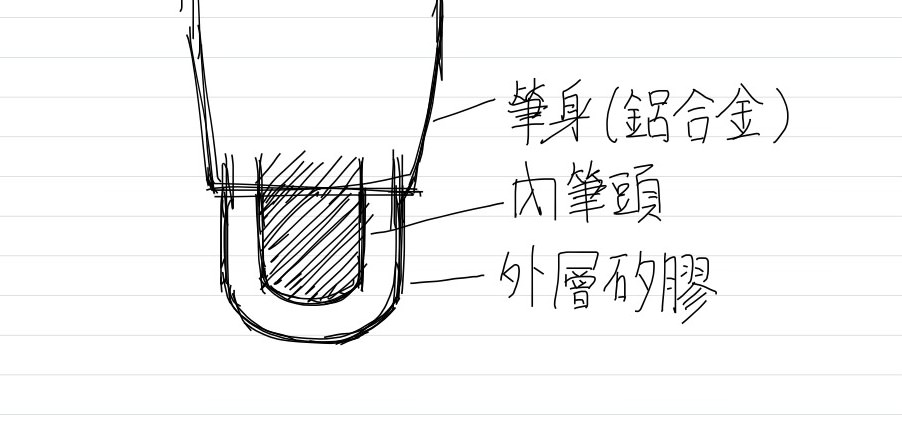 筆身(鋁合金)
內筆頭
外層矽膠